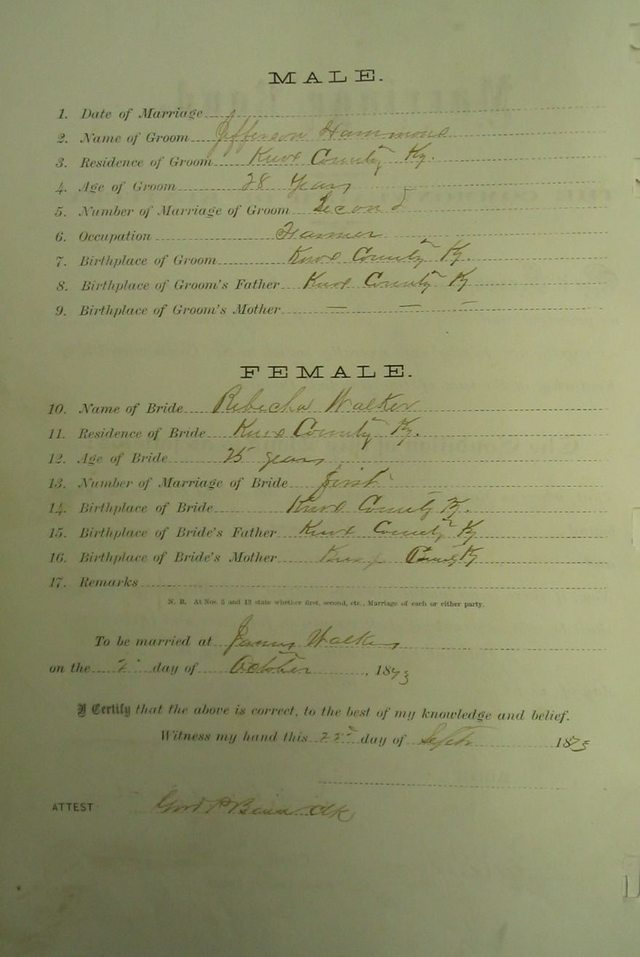 MALE.
1. Date of Marriage
2. Name of Groom Jefferson Hammons
3. Residence of Groom Knox County Ky.
4. Age of Groom 28 years
5. Number of Marriage of Groom Second
6. Occupation Farmer
7. Birthplace of Groom Knox County Ky
8. Birthplace of Groom's Father Knox County Ky
9. Birthplace of Groom's Mother — — —
FEMALE.
10. Name of Bride Rebecha Walker
11. Residence of Bride Knox County Ky.
12. Age of Bride 25 years
13. Number of Marriage of Bride first
14. Birthplace of Bride Knox County Ky.
15. Birthplace of Bride's Father Knox County Ky
16. Birthplace of Bride's Mother Knox County Ky
17. Remarks
N. B. At Nos. 5 and 13 state whether first, second, etc., Marriage of each or either party.
To be married at Walkers
on the 2 day of October, 1873
I Certify that the above is correct, to the best of my knowledge and belief.
Witness my hand this day of Sept 1873
ATTEST Clk